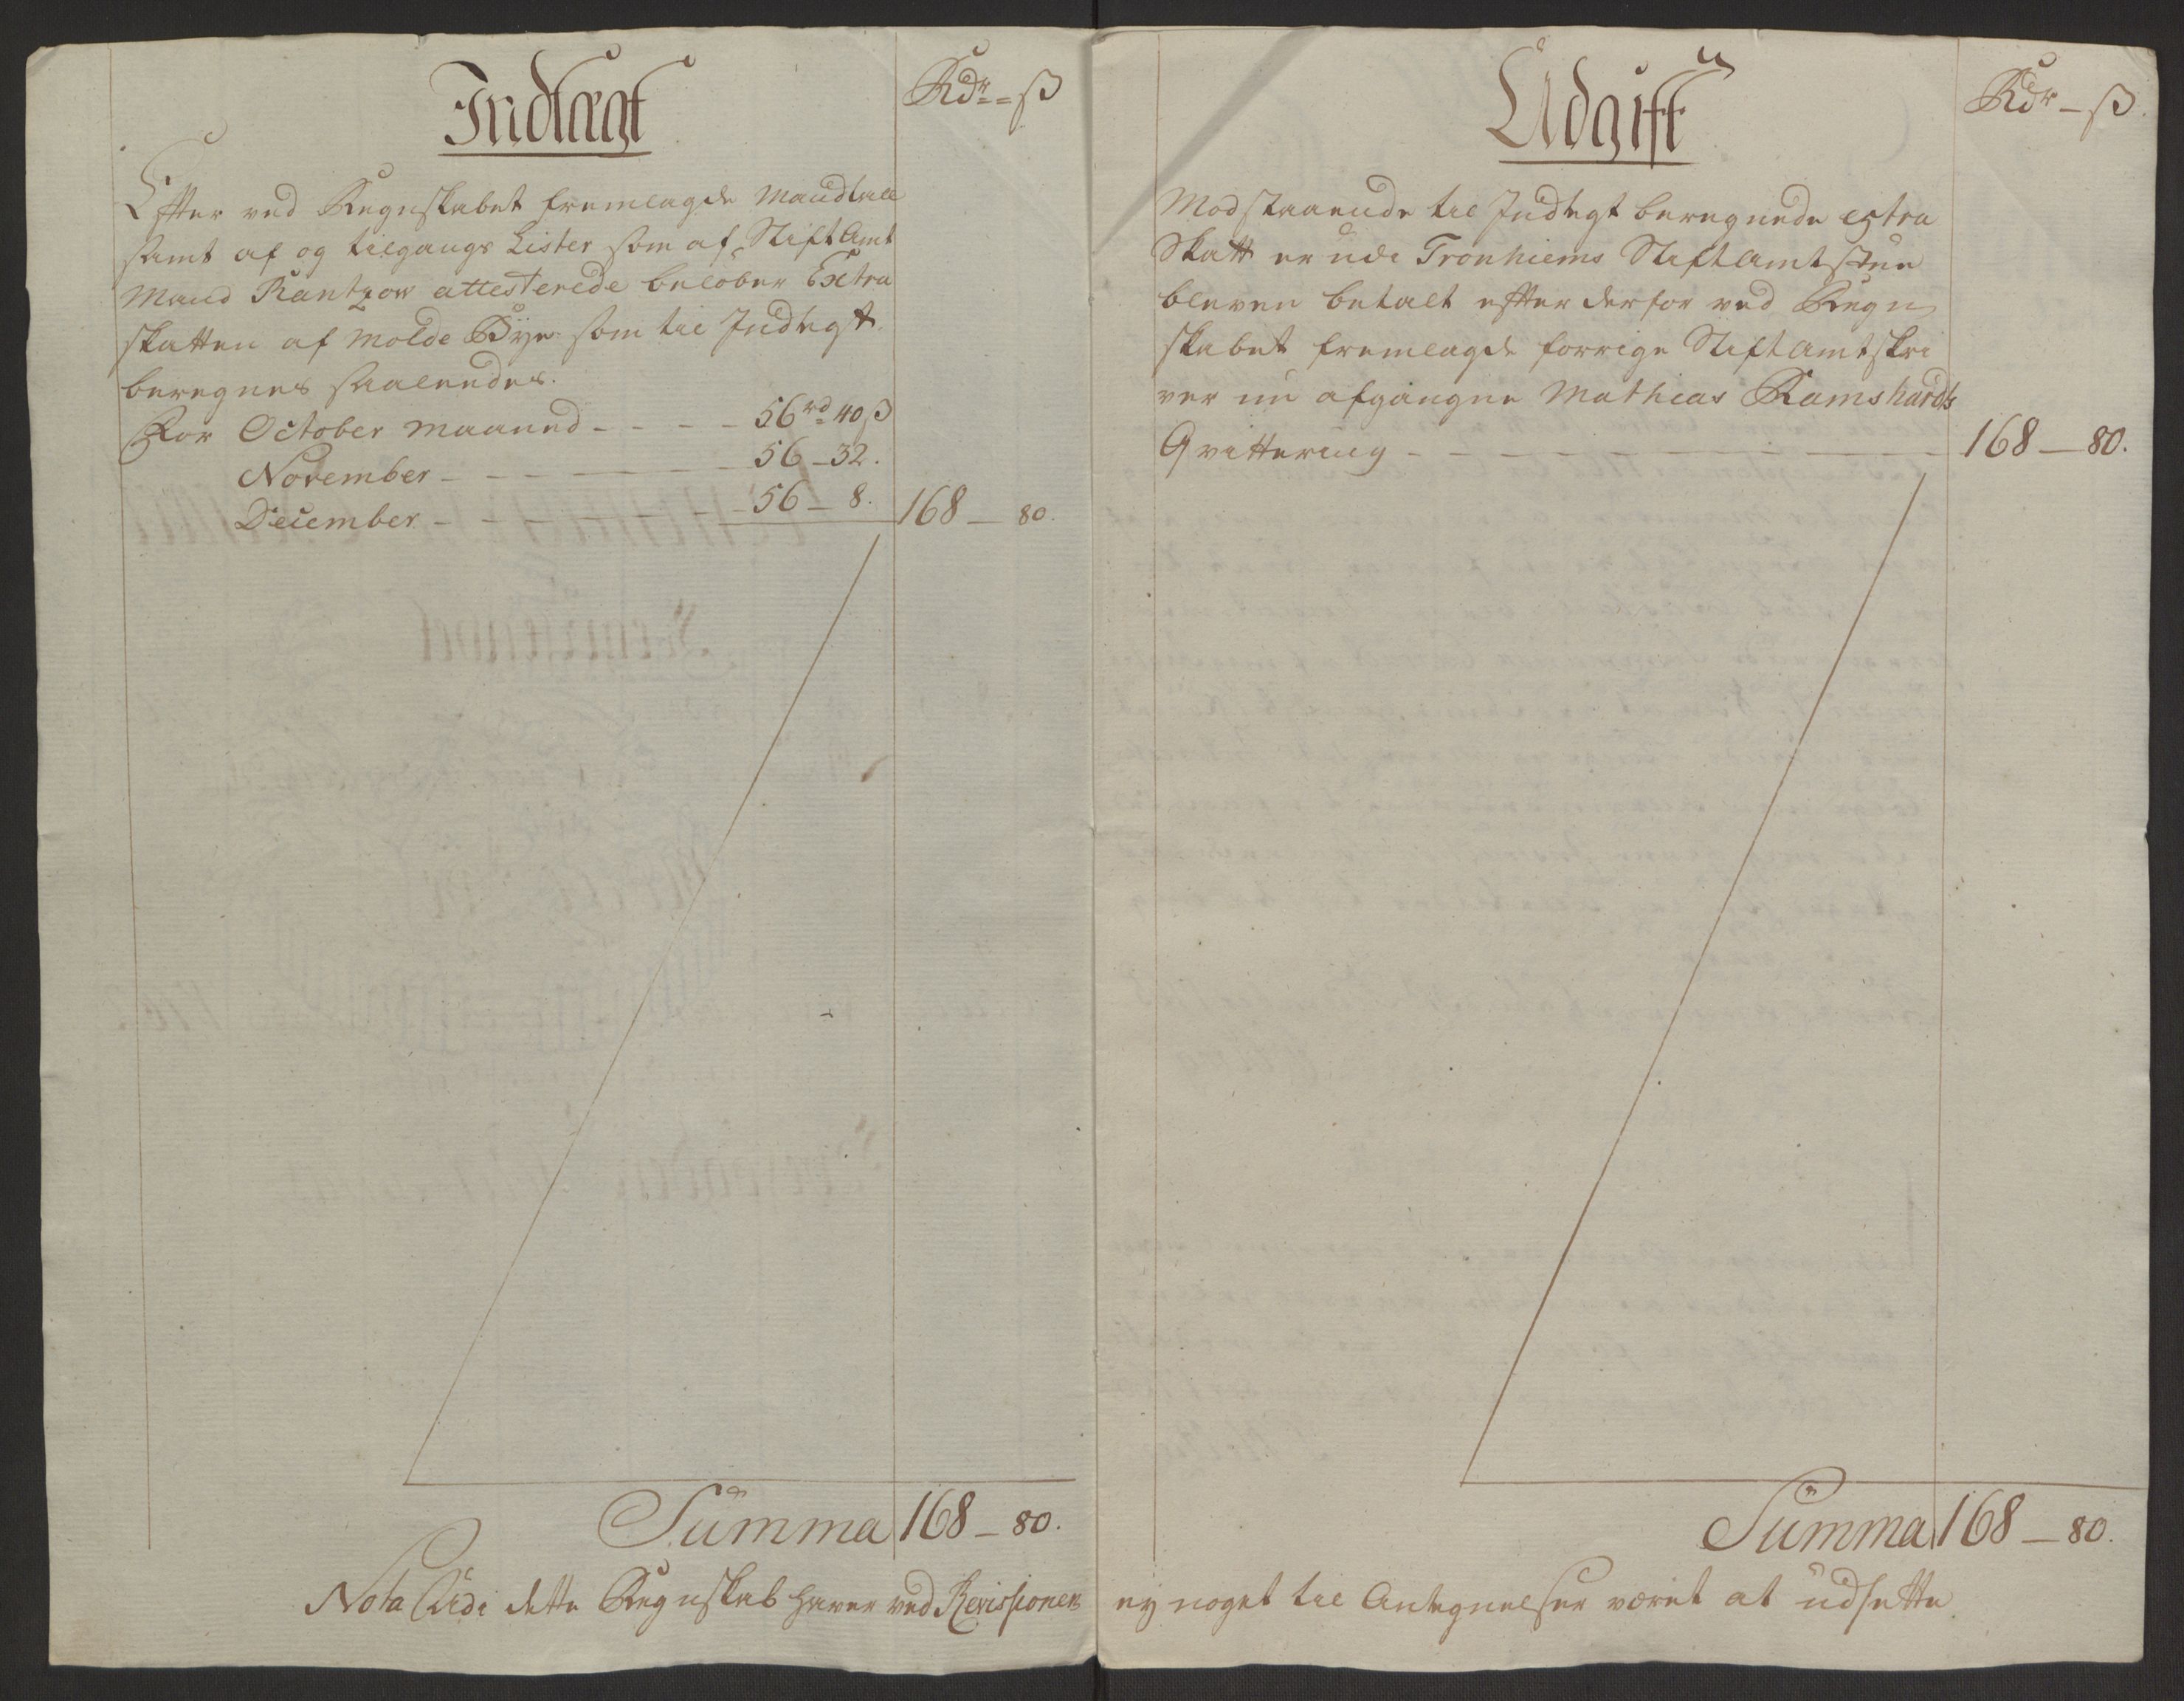 Indtægt
Rdr - ß
Efter ved Regnskabet fremlagde Mandtall
samt af og tilgangs Lister som af Stiftamt
Mand Rantzow attesterede beløber Extra
skatten af Molde Bye som til Indtegt
beregnes saaledes.
For October Maaned - - - - 56 rd 40 ß
November - - - - - - 56 - 32.
December - - - - - - 56 - 8. 168 - 80.
Summa 168 - 80.
Udgift
Rdr - ß.
Modstaaende til Indtegt beregnede extra
Skatt er udi Tronhiems Stiftamtstue
bleven betalt efter derfor ved Regn
skabet fremlagde forrige Stiftamtskri
ver nu afgangne Mathias Ramshardts
Qvittering - - - - - - - - - 168 - 80.
Summa 168 - 80.
Nota Udi dette Regnskab haver ved Revissionen ey noget til Antegnelser været at udsette.